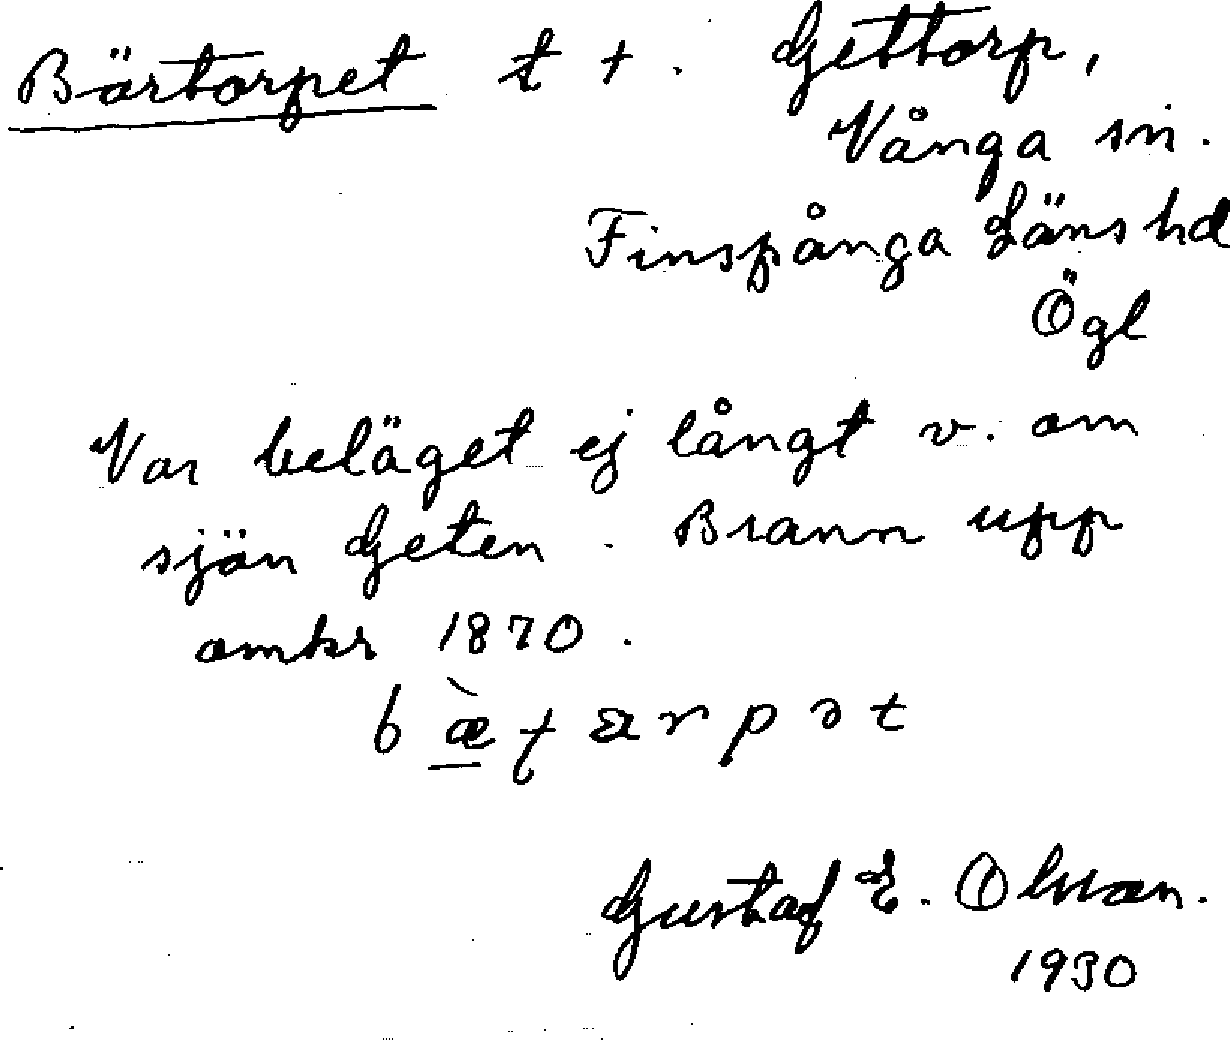 Bärtorpet t +. Gettorp,
Vånga sn.
Finspånga läns hd
Ögl
Var beläget ej långt v. om
sjön Geten. Brann upp
omkr 1870.
Gustaf E. Olsson.
1930